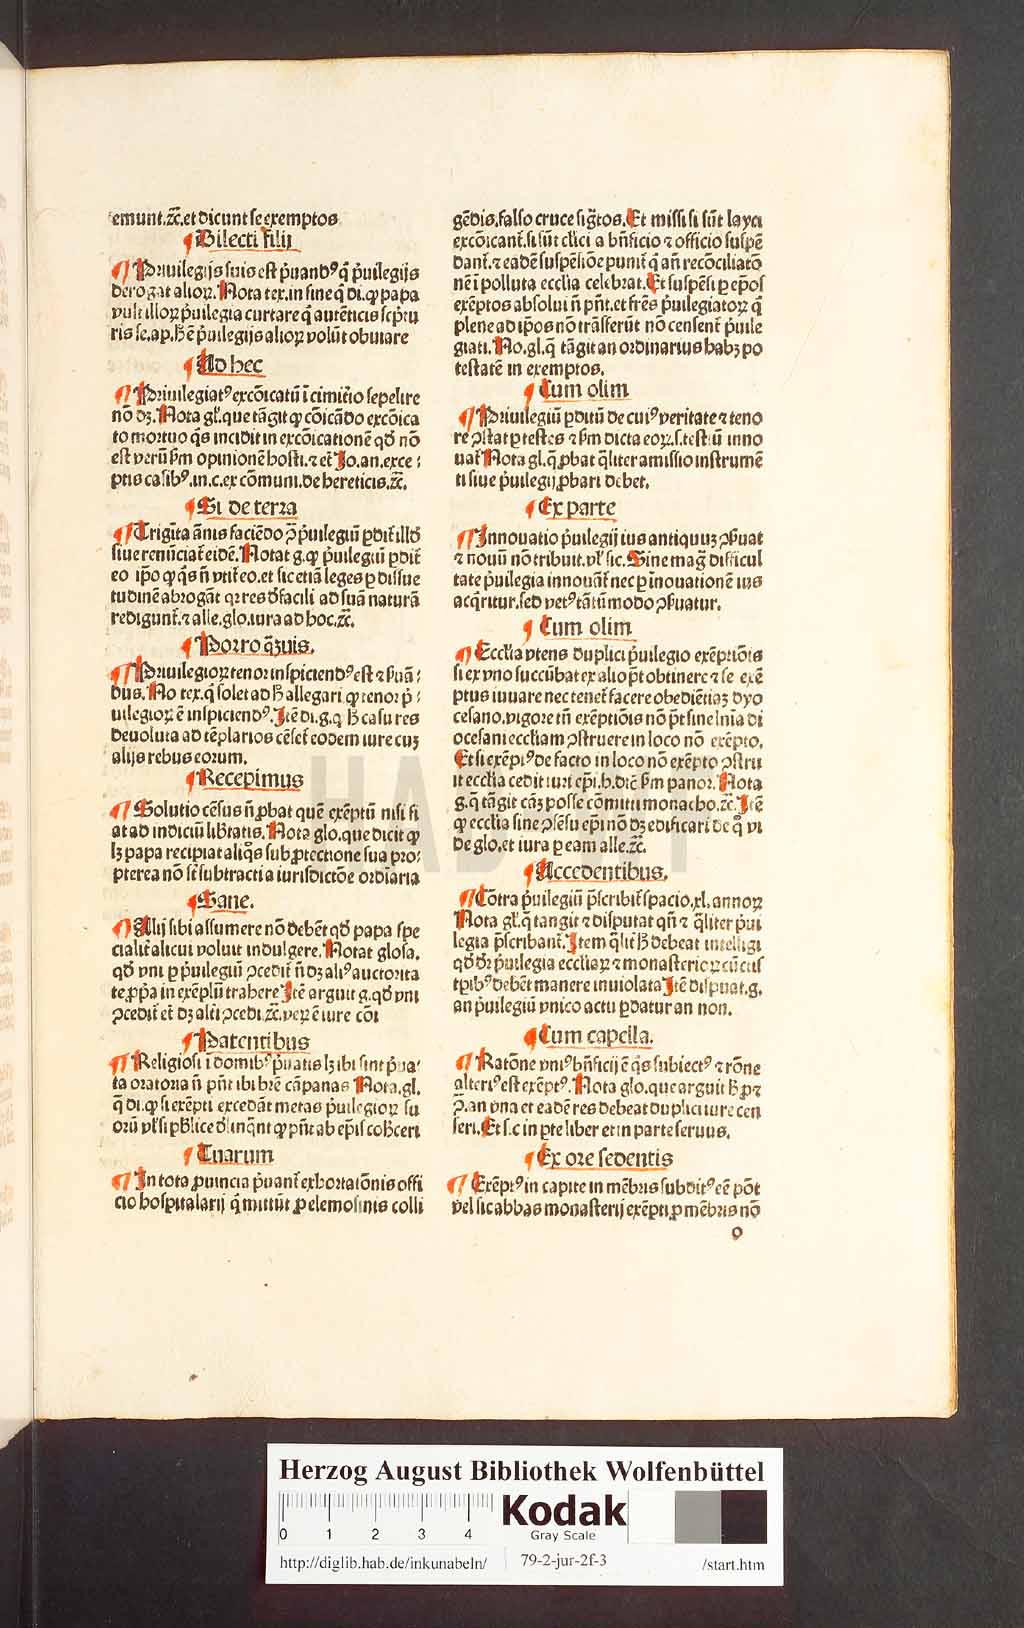 emunt.ꝛc̄.et dicunt se exemptos
¶ Dilecti filij
¶ Priuilegijs suis est p̓uandꝰ q̓ p̓uilegijs
derogat alioꝝ. Nota tex.in fine q̓ di.ꝙ papa
vult illoꝝ p̓uilegia curtare q̓ autēticis sc̓ptu
ris se.ap.hͦ ē p̓uilegijs alioꝝ volūt obuiare
¶ Ad hec
¶ Priuilegiatꝰ excōicatū ī cimit̓io sepelire
nō dꝫ. Nota gl̓.que tāgit ꝙ cōicādo excōica
to mortuo q̓s incidit in excōicationē qd̓ nō
est verū ẜm opinionē hosti.⁊ et̄ Jo.an.exce-
ptis casibꝰ.in.c.ex cōmuni.de hereticis.ꝛc̄.
¶ Si de terra
¶ Triginta ānis faciēdo ↄ̄ p̓uilegiū ꝑdit̄ illd̓
siue renūciat̄ eidē. Notat g.ꝙ p̓uilegiū ꝑdit̄
eo ip̄o ꝙ q̓s n̄ vtit̄ eo.et sic etiā leges ꝑ dissue
tudinē abrogāt̄ qꝛ res d̓ facili ad suā naturā
redigunt̄.⁊ alle.glo.iura ad hoc.ꝛc̄.
¶ Porro q̄ꝫuis.
¶ Priuilegioꝝ tenor inspiciendꝰ est ⁊ ẜuā-
dus. No tex.q̓ solet ad hͦ allegari ꝙ tenor p̓-
uilegioꝝ ē inspiciendꝰ. Itē di.g.ꝙ hͦ casu res
deuoluta ad tēplarios cēset̄ eodem iure cuꝫ
alijs rebus eorum.
¶ Recepimus
¶ Solutio cēsus n̄ ꝓbat quē exēptū nisi fi
at ad indiciū lib̓tatis. Nota glo.que dicit ꝙ
lꝫ papa recipiat aliq̓s sub ꝓtectione sua pro-
pterea nō sūt subtracti a iurisdictōe ordiaria
¶ Sane.
¶ Alij sibi assumere nō debēt qd̓ papa spe
cialit̓ alicui voluit indulgere. Notat glosa.
qd̓ vni ꝑ p̓uilegiū ↄcedit̄ n̄ dꝫ aliꝰ auctorita
te ꝓp̓a in exēplū trahere Itē arguit g.qd̓ vni
ↄcedit̄ et̄ dꝫ alt̓i ↄcedi.ꝛc̄.veꝝ ē iure cōi
¶ Patentibus
¶ Religiosi ī domibꝰ p̓uatis lꝫ ibi sint p̓ua-
ta oratoria n̄ pn̄t ibi hr̄e cāpanas Nota.gl.
q̓ di.ꝙ si exēpti excedāt metas p̓uilegioꝝ su
orū vl̓ si pb̓lice d̓linq̄nt ꝙ pn̄t ab ep̄is coh̓ceri
¶ Tuarum
¶ In tota ꝓuincia p̓uant̄ exhortatōnis offi
cio hospitalarij q̓ mittūt ꝓ elemosinis colli
gēdis.falso cruce sig̓tos. Et missi si sūt layci
excōicant̄.si sūt cl̓ici a bn̄ficio ⁊ officio suspē
dant̄.⁊ eadē suspēsiōe punit̄ q̓ an̄ recōciliatō
nē ī polluta ecclīa celebrat. Et suspēsi ꝑ ep̄os
exēptos absolui n̄ pn̄t.et fr̄es p̓uilegiatoꝝ q̓
plene ad ip̄os nō trāsferūt̄ nō censent̄ p̓uile
giati. No.gl.q̓ tāgit an ordinarius habꝫ po
testatē in exemptos.
¶ Cum olim
¶ Priuilegiū ꝑditū de cuiꝰ veritate ⁊ teno
re ↄ̄stat ꝑ testes ⁊ ẜm dicta eoꝝ.s.testiū inno
uat̄ Nota gl.q̓ ꝓbat q̓liter amissio instrumē
ti siue p̓uilegij ꝓbari debet.
¶ Ex parte
¶ Innouatio p̓uilegij ius antiquuꝫ ↄẜuat
⁊ nouū nō tribuit.vl̓ sic. Sine mag̓ difficul
tate p̓uilegia innouāt̄ nec ꝑ īnouationē ius
acq̓ritur.sed vetꝰ tātūmodo ↄẜuatur.
¶ Cum olim
¶ Ecclīa vtens duplici p̓uilegio exēptiōis
si ex vno succūbat ex alio pt̄ obtinere ⁊ se exē
ptus iuuare nec tenet̄ facere obediētiaꝫ dyo
cesano.vigore tn̄ exēptiōis nō pt̄ sine ln̄ia di
ocesani eccl̓iam ↄstruere in loco nō exēpto.
Et si exēpt̓ꝰ de facto in loco nō exēpto ↄstru
it ecclīa cedit iuri ep̄i.h.dic̄ ẜm panor. Nota
g.q̓ tāgit cāꝫ posse cōmitti monacho.ꝛc̄. Itē
ꝙ ecclīa sine ↄsēsu ep̄i nō dꝫ edificari de qͦ vi
de glo.et iura ꝑ eam alle.ꝛc̄.
¶ Accedentibus.
¶ Cōtra p̓uilegiū p̄scribit̄ spacio.xl.annoꝝ
Nota gl̓.q̓ tangit ⁊ disputat qn̄ ⁊ q̓liter p̓ui
legia p̄scribant̄. Item q̓lit̓ hͦ debeat intelligi
qd̓ dr̄ p̓uilegia eccl̓iaꝝ ⁊ monasterioꝝ cūctis
tp̄ibꝰ debēt manere inuiolata Itē disputat.g.
an p̓uilegiū vnico actu ꝑdatur an non.
¶ Cum capella.
¶ Ratōne vniꝰ bn̄ficij ē q̓s subiectꝰ ⁊ rōne
alteriꝰ est exēptꝰ. Nota glo.que arguit hͦ ꝓ ⁊
ↄ̄.an vna et eadē res debeat duplici iure cen
seri. Et s.c in ꝑte liber et in parte seruus.
¶ Ex ore sedentis
¶ Exēptꝰ in capite in mēbris subditꝰ eē pōt
vel sic abbas monasterij exēpti.ꝓ mēbris nō
o
Herzog August Bibliothek Wolfenbüttel
0 1 2 3 4
Kodak
Gray Scale
http://diglib.hab.de/inkunabeln/ 79-2-jur-2f-3 /start.htm
HAB WF